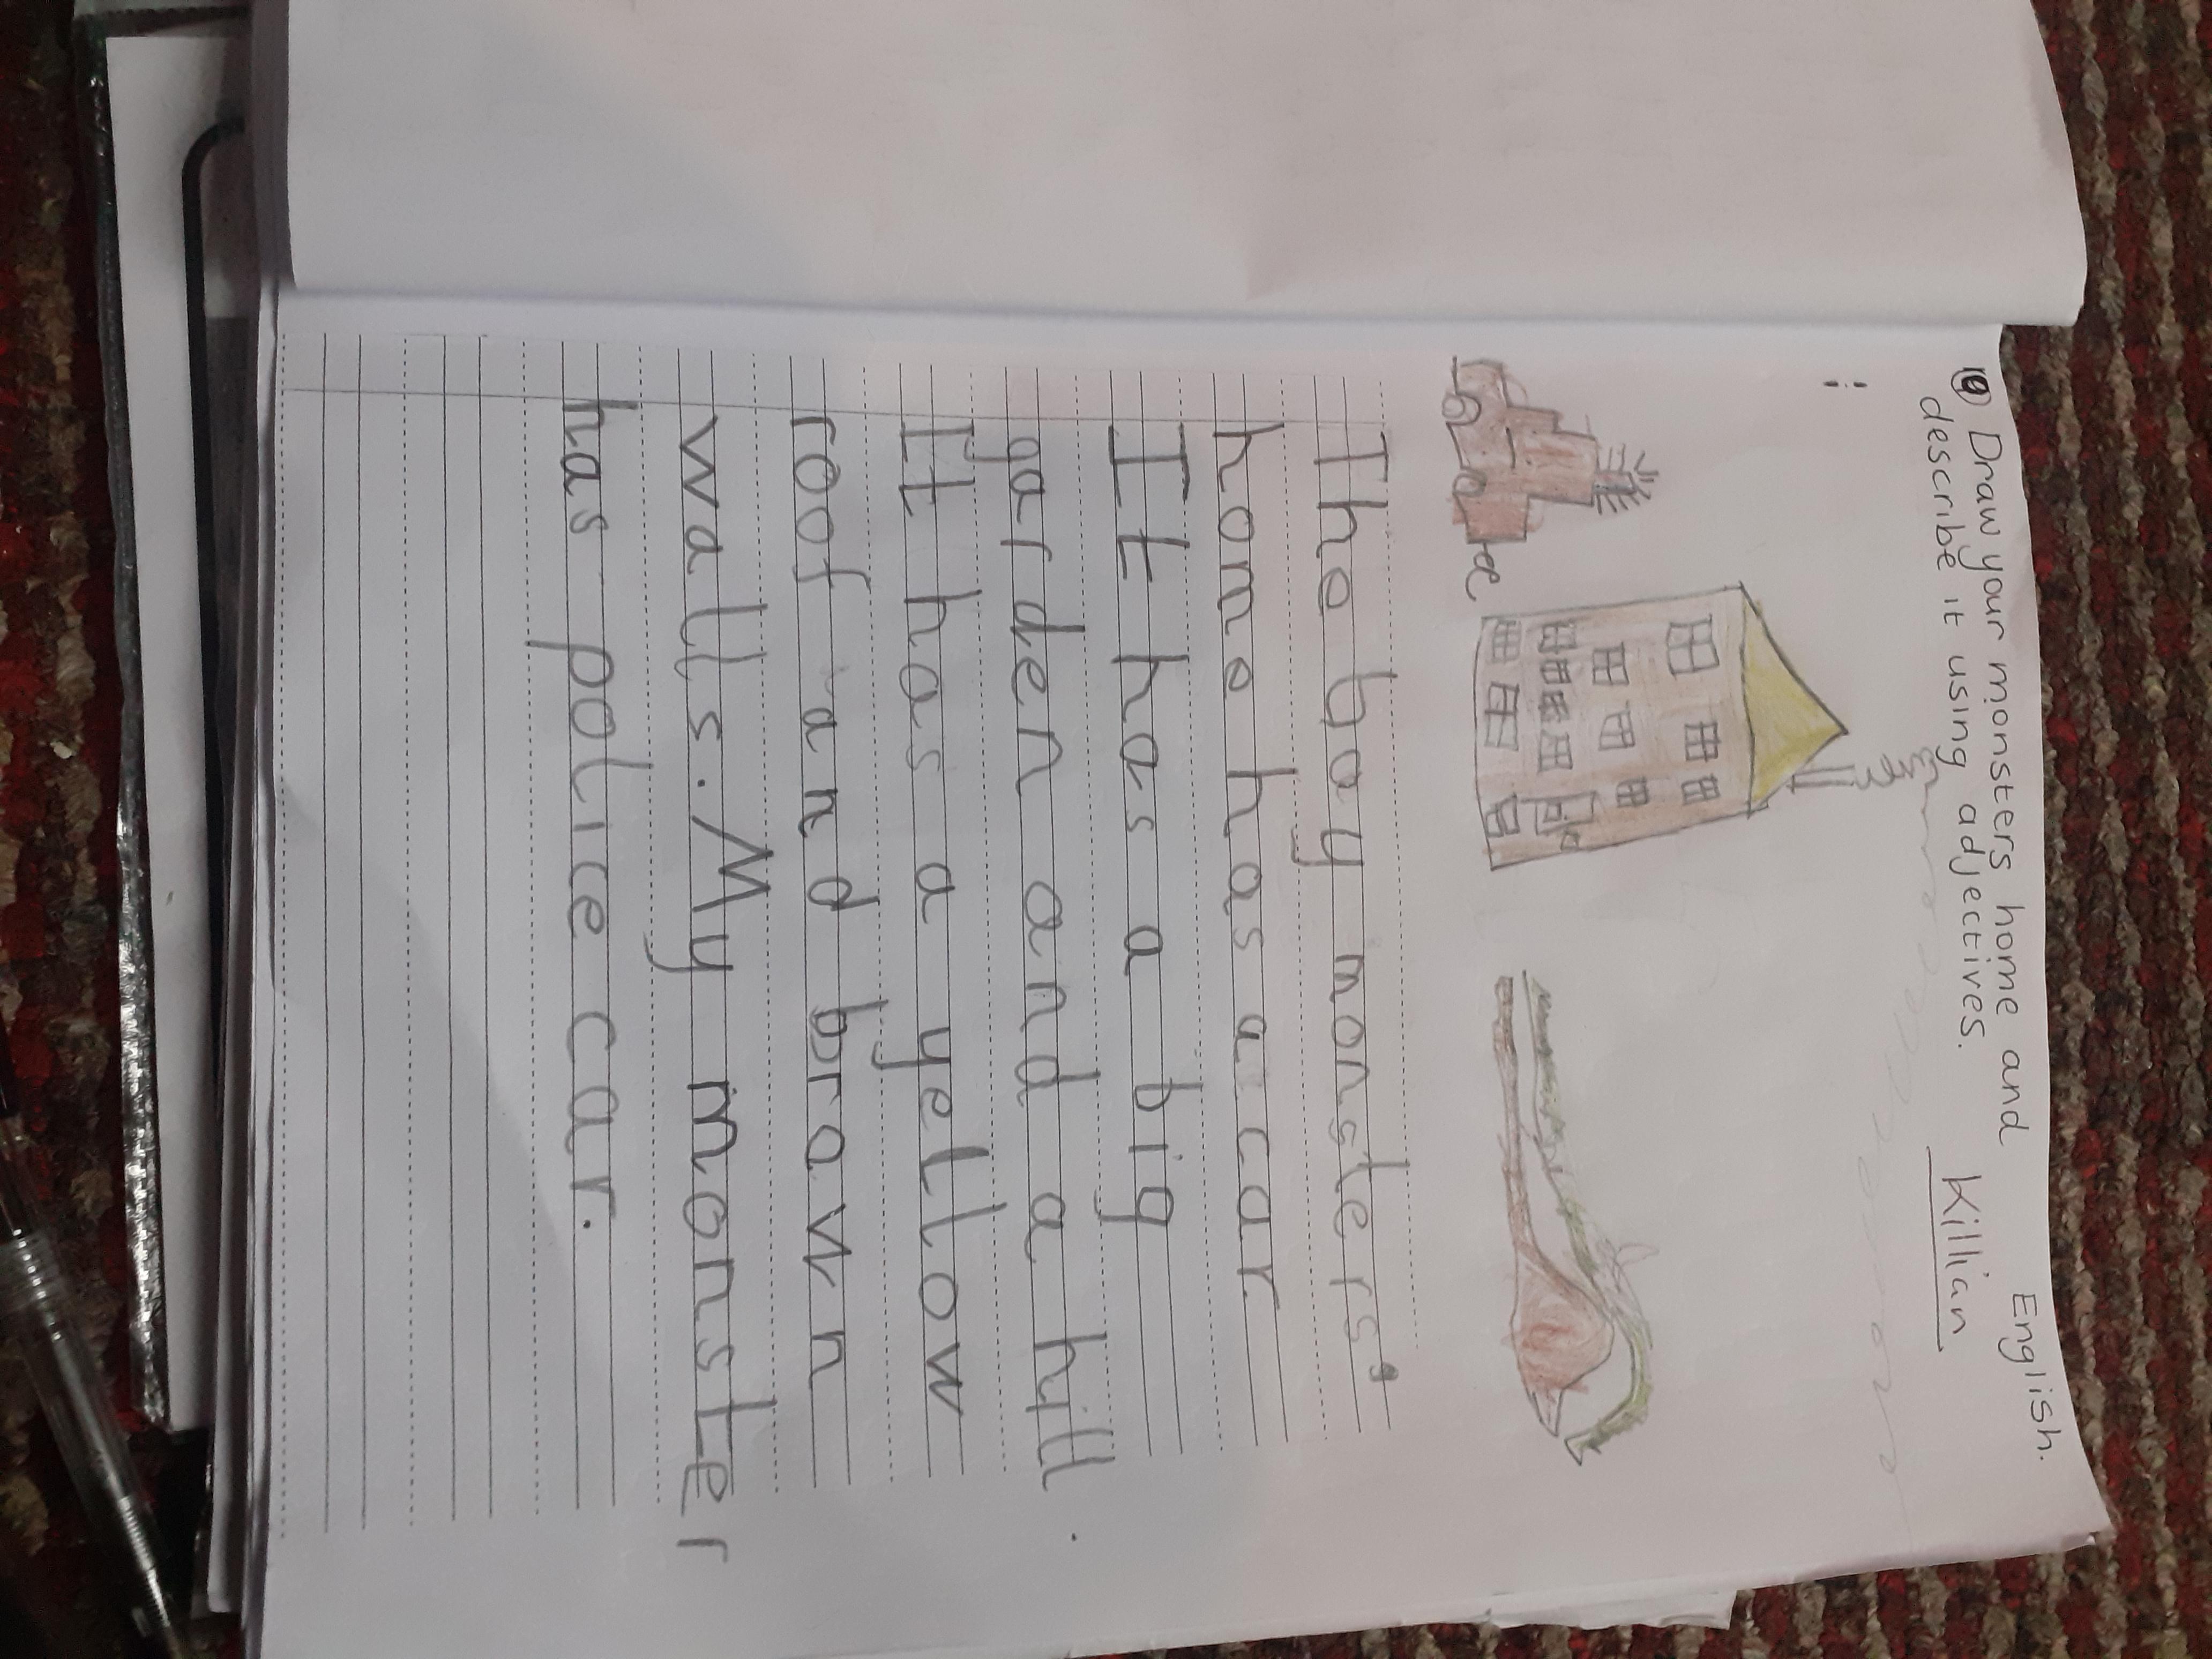 English.
⑩ Draw your monsters home and
describe it using adjectives.
Killian
The boy monsters'
home has a car
It has a big
garden and a hill.
It has a yellow
roof and brown
walls. My monster
has police car.